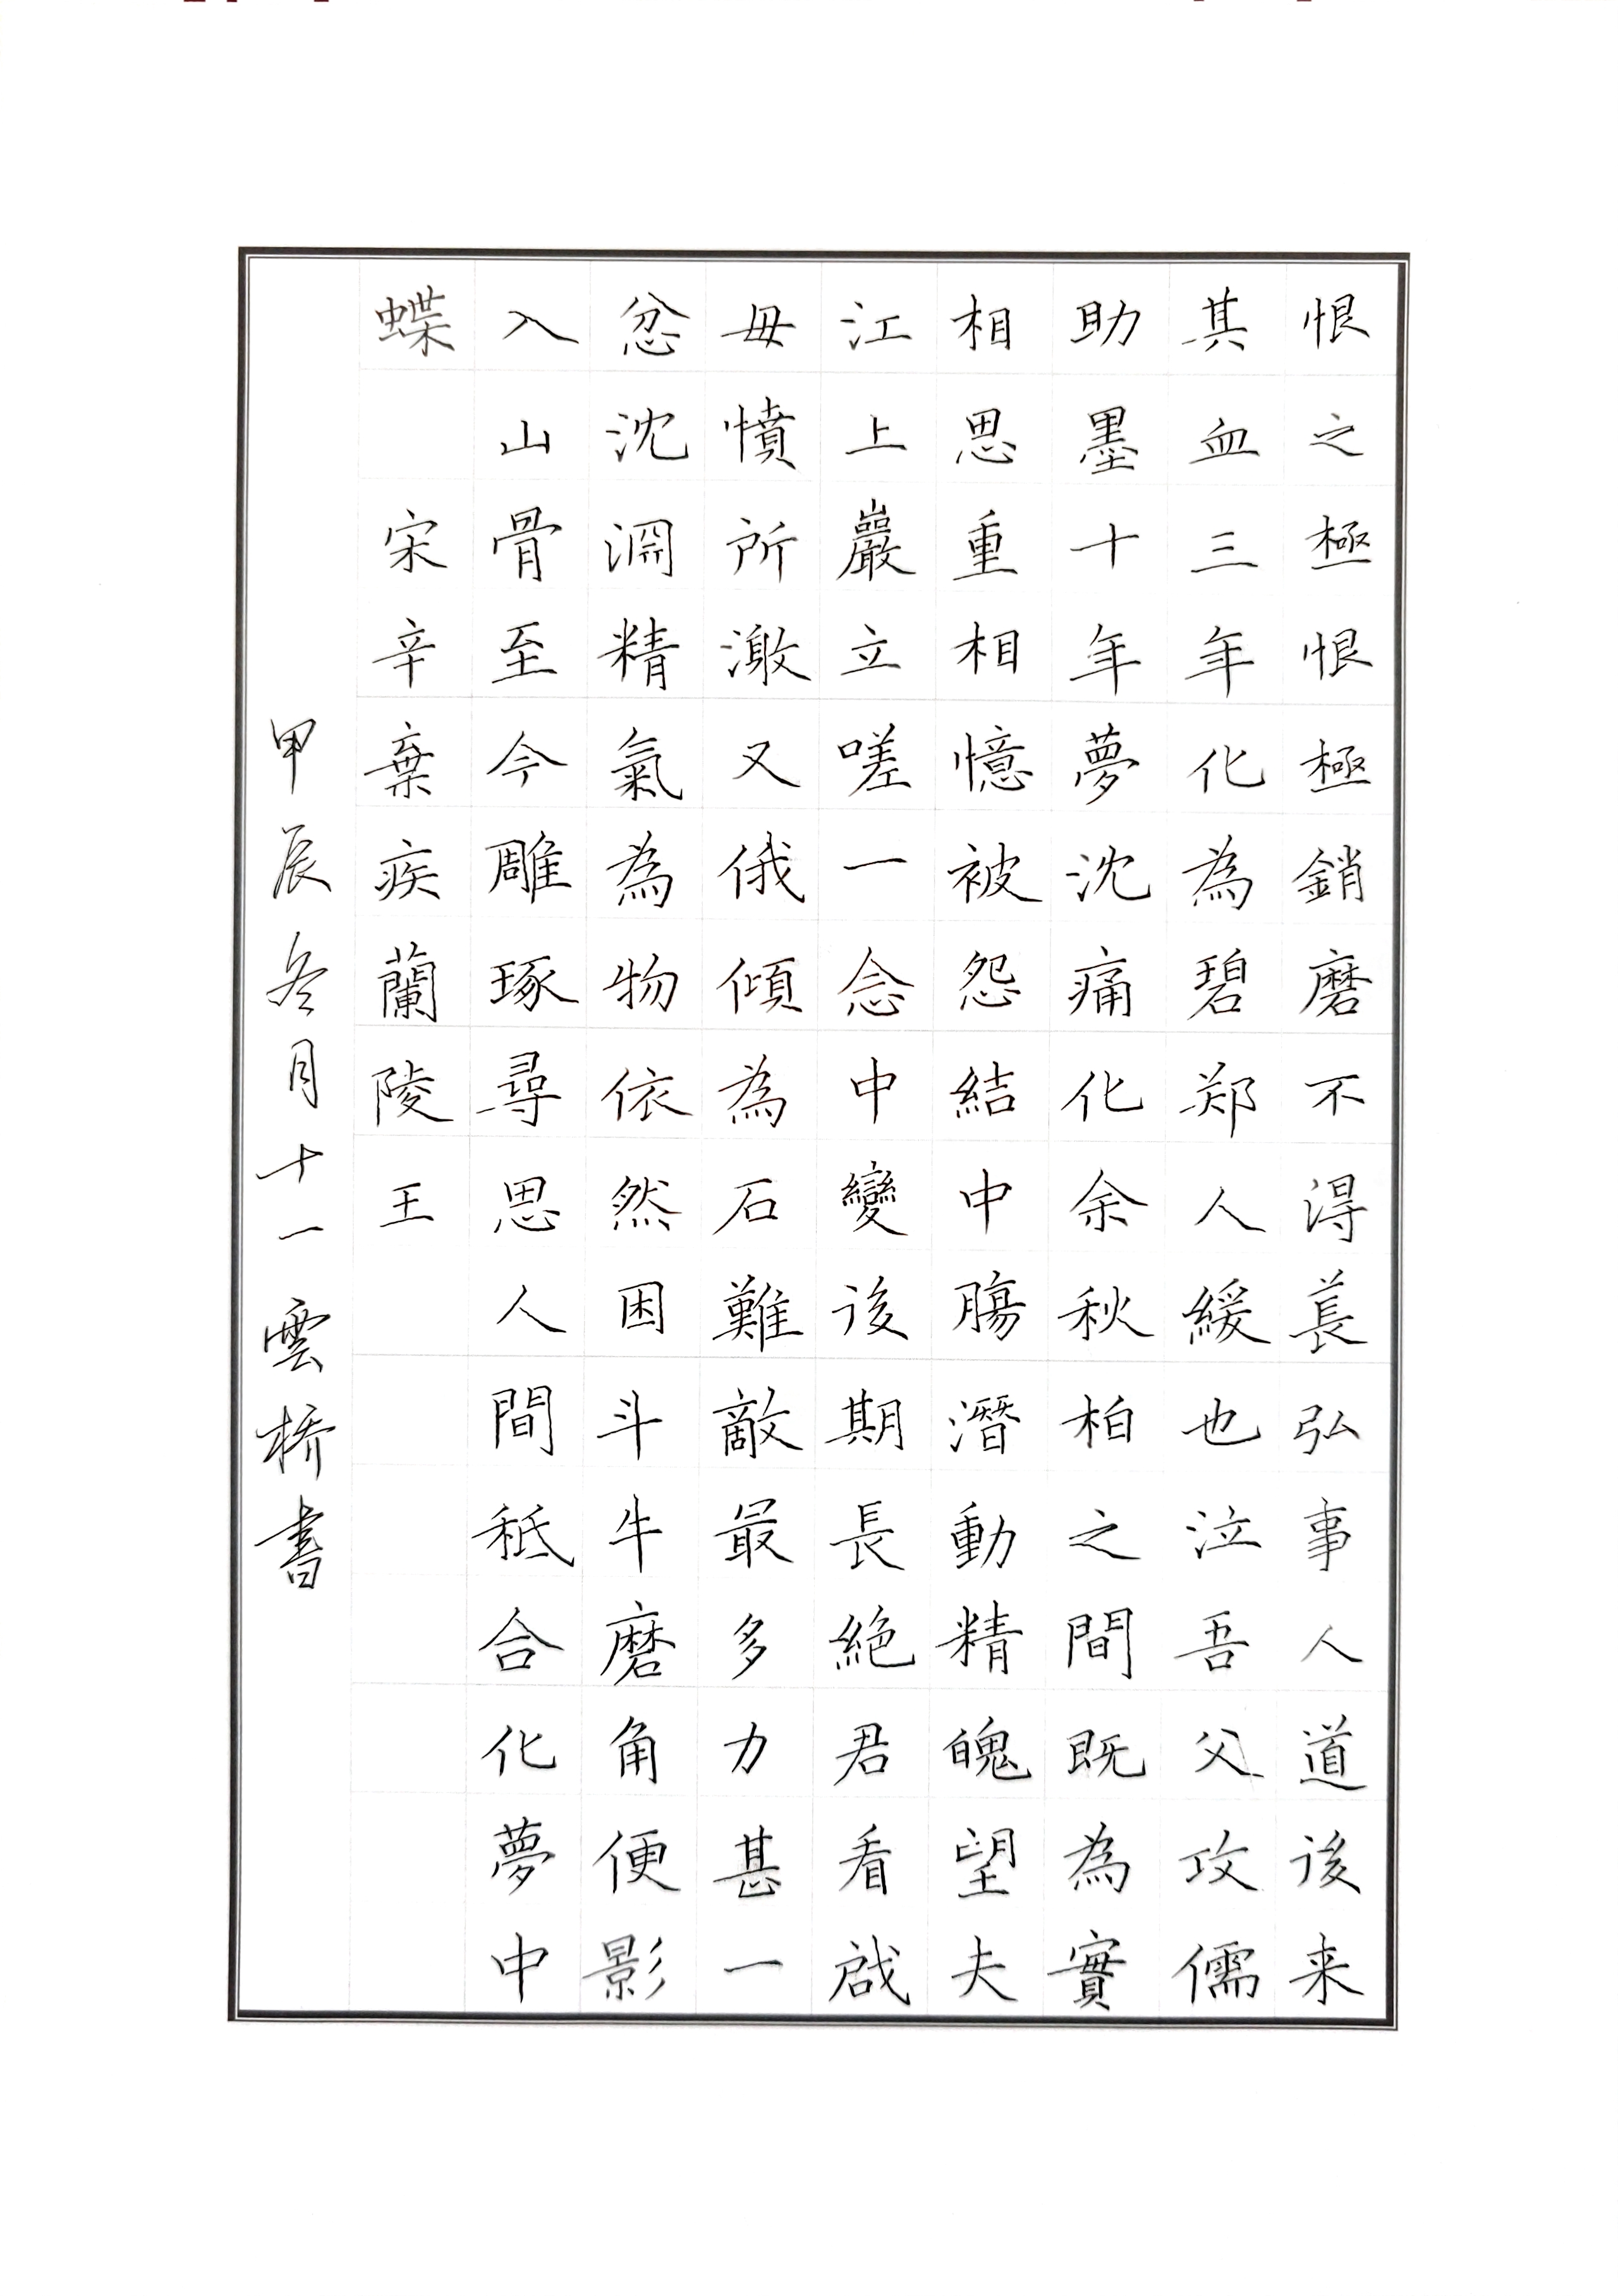 恨之極恨極銷磨不得萇弘事人道後来
其血三年化為碧郑人緩也泣吾父攻儒
助墨十年夢沈痛化余秋柏之間既為實
相思重相憶被怨結中腸潛動精魄望夫
江上巖立嗟一念中變後期長絕君看啟
母憤所激又俄傾為石難敵最多力甚一
忿沈淵精氣為物依然困斗牛磨角便影
入山骨至今雕琢尋思人間秖合化夢中
蝶 宋辛棄疾蘭陵王
甲辰冬月十一雲橋書